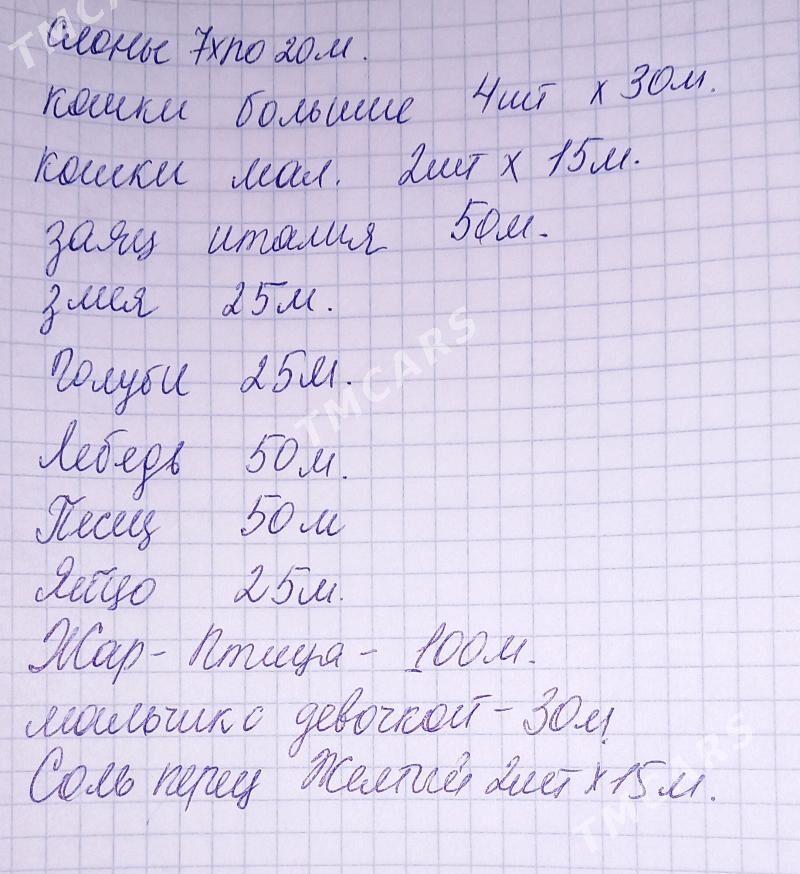 Слоны 7xпо 20м.
кошки большие 4шт x 30м.
кошки мал. 2шт x 15м.
заяц италия 50м.
змея 25м.
Голуби 25м.
Лебедь 50м.
Песец 50м
Яйцо 25м.
Жар-Птица - 100м.
мальчик с девочкой - 30м
Соль перец Желтый 2шт x 15м.
TMCARS
TMCARS
TMCARS